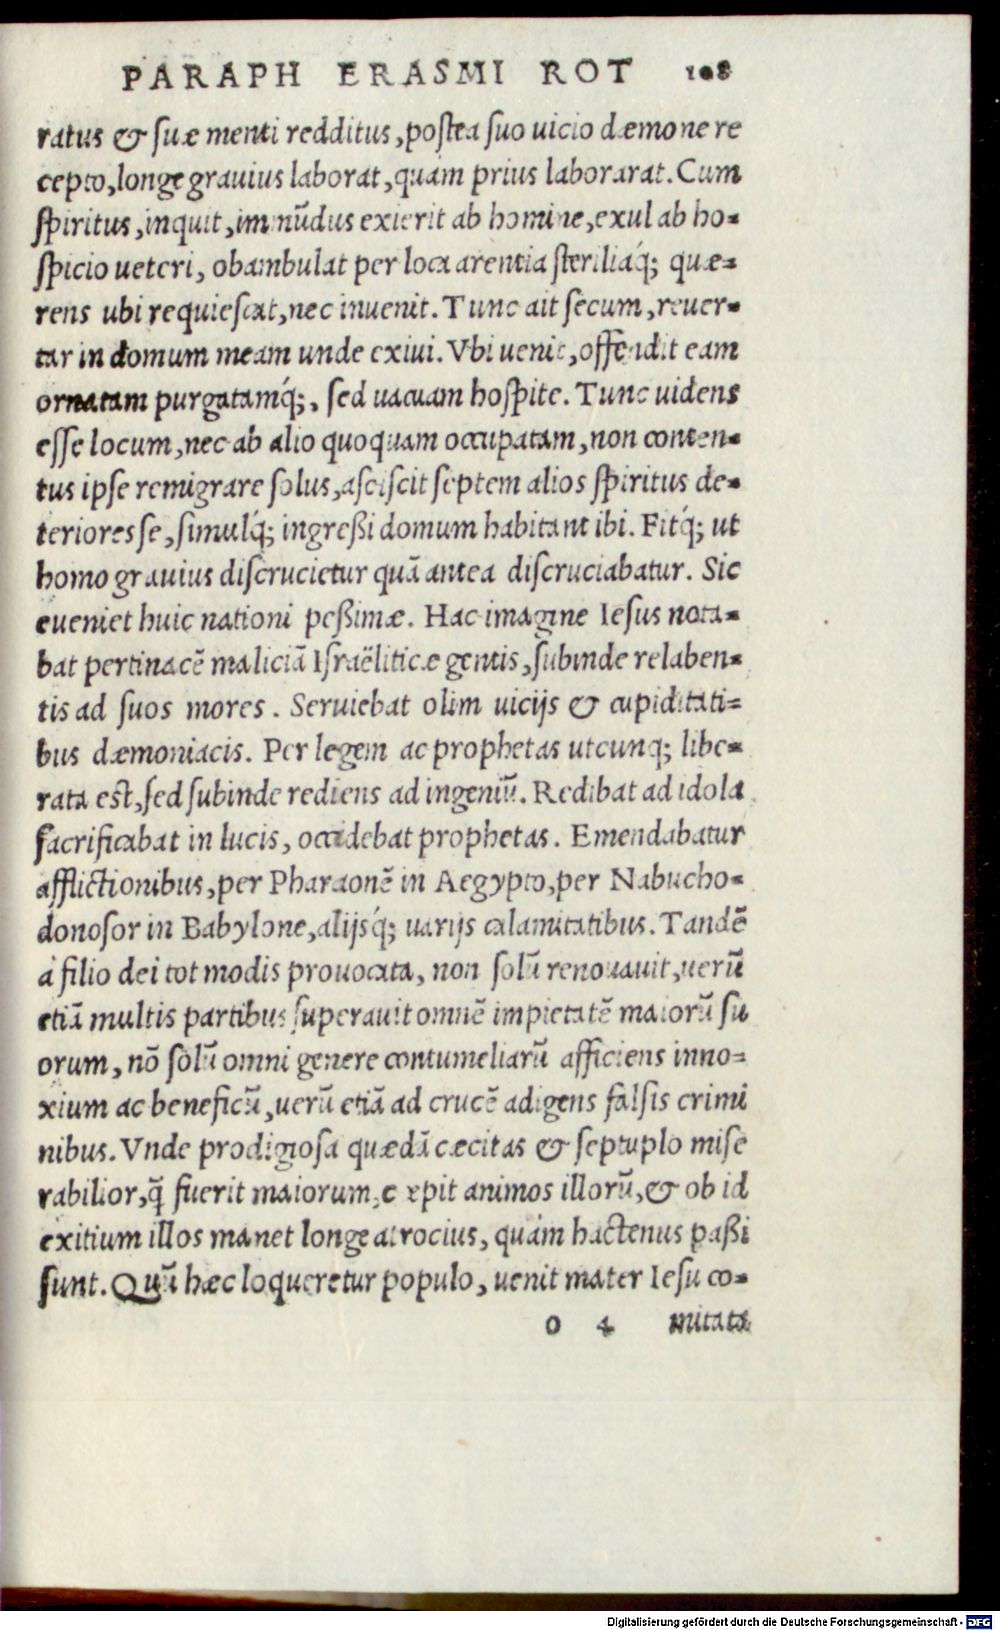 PARAPH ERASMI ROT 108
ratus & suæ menti redditus, postea suo uicio dæmone re
cepto, longe grauius laborat, quàm prius laborarat. Cum
spiritus, inquit, imnũdus exierit ab homine, exul ab ho-
spicio ueteri, obambulat per loca arentia steriliaq́; quæ-
rens ubi requiescat, nec inuenit. Tunc ait secum, reuer-
tar in domum meam unde exiui. Vbi uenit, offendit eam
ornatam purgatamq́;, sed uacuam hospite. Tunc uidens
esse locum, nec ab alio quoquam occupatam, non conten-
tus ipse remigrare solus, asciscit septem alios spiritus de-
teriores se, simulq́; ingreßi domum habitant ibi. Fitq́; ut
homo grauius discrucietur quã antea discruciabatur. Sic
eueniet huic nationi peßimæ. Hac imagine Iesus nota-
bat pertinacẽ maliciã Israëliticæ gentis, subinde relaben-
tis ad suos mores. Seruiebat olim uicijs & cupiditati-
bus dæmoniacis. Per legem ac prophetas utcunq; libe-
rata est, sed subinde rediens ad ingeniũ. Redibat ad idola
sacrificabat in lucis, occidebat prophetas. Emendabatur
afflictionibus, per Pharaonẽ in Aegypto, per Nabucho-
donosor in Babylone, alijsq́; uarijs calamitatibus. Tandẽ
à filio dei tot modis prouocata, non solũ renouauit, uerũ
etiã multis partibus superauit omnẽ impietatẽ maiorũ su
orum, nõ solũ omni genere contumeliarũ afficiens inno-
xium ac beneficũ, uerũ etiã ad crucẽ adigens falsis crimi
nibus. Vnde prodigiosa quædã cæcitas & septuplo mise
rabilior, q̃ fuerit maiorum, cæpit animos illorũ, & ob id
exitium illos manet longe atrocius, quàm hactenus paßi
sunt. Quũ hæc loqueretur populo, uenit mater Iesu co-
o 4 mitata
Digitalisierung gefördert durch die Deutsche Forschungsgemeinschaft - DFG